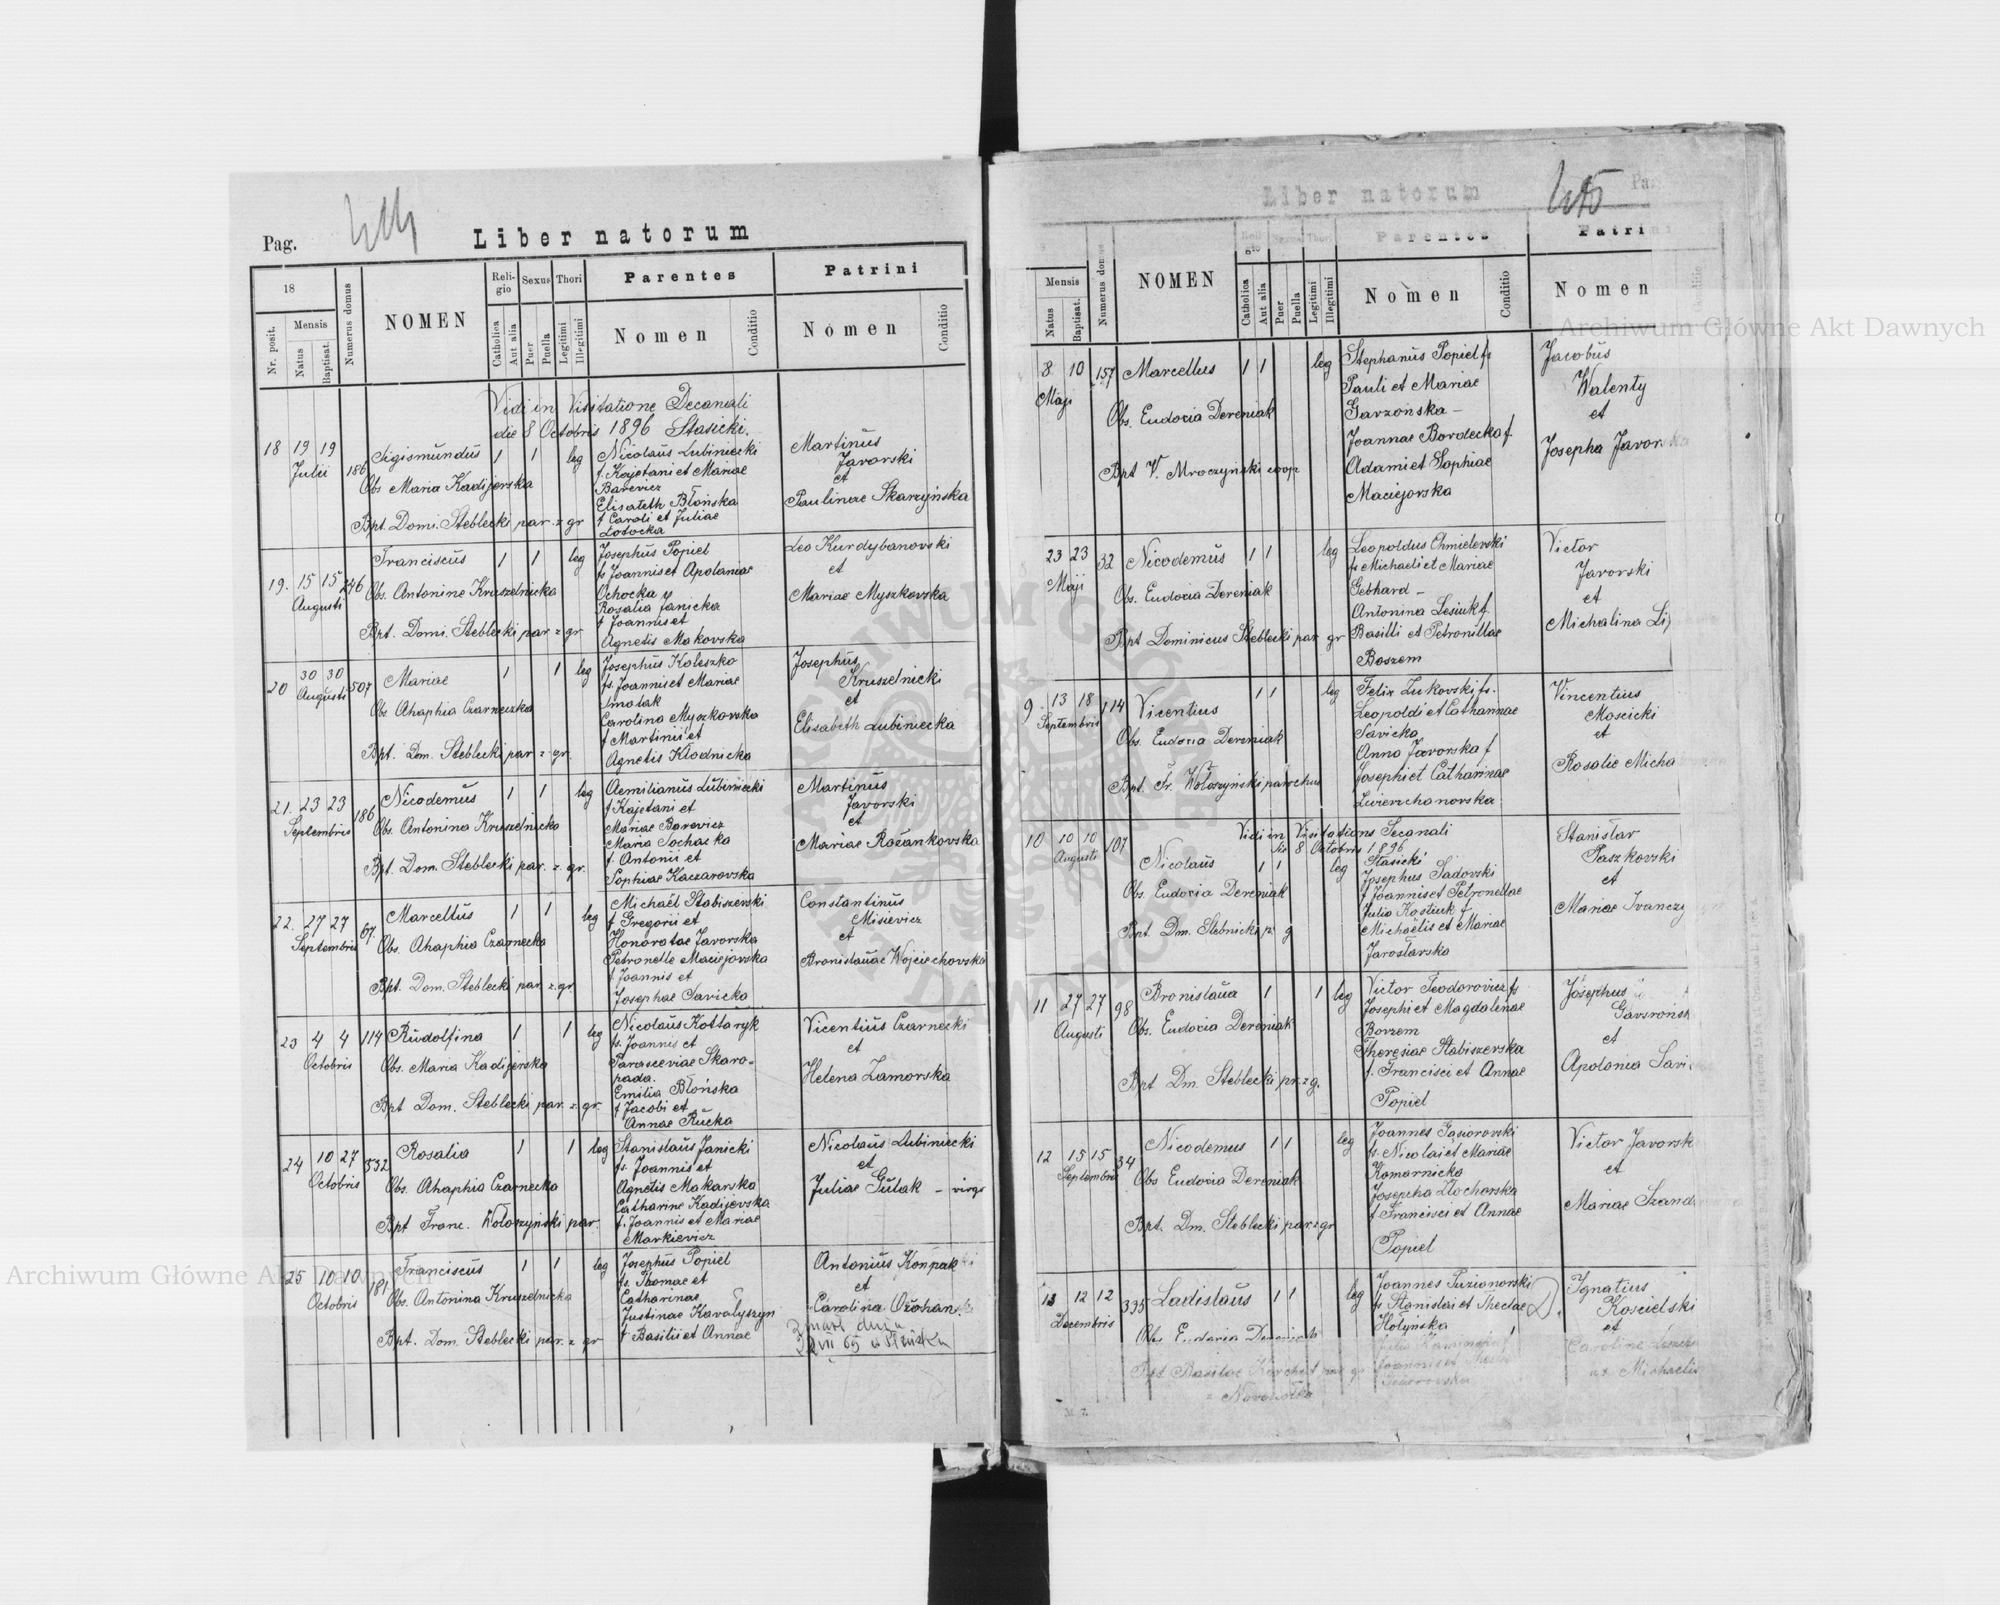 Pag.
Liber natorum
18
Nr. posit.
Mensis
Natus
Baptisat.
Numerus domus
NOMEN
Religio
Catholica
Aut alia
Sexus
Puer
Puella
Thori
Legitimi
Illegitimi
Parentes
Nomen
Conditio
Patrini
Nomen
Conditio
Vidi in Visitatione Decanali
die 8 Octobris 1896 Stasicki.
18 19 19 Julii 186 Sigismundus 1 1 leg
Obs Maria Kadijerska
Bpt. Domi. Steblecki par. z gr
Nicolaus Lubiniecki
f. Kajetani et Mariae
Barevicz
Elisabeth Błońska
f Caroli et Juliae
Lotocka
Martinus
Javorski
et
Paulinae Skarzyńska
19. 15 15 Augusti 246 Franciscus 1 1 leg
Obs. Antonine Kruszelnicka
Bpt. Domi. Steblecki par z gr
Josephus Popiel
fs Joannis et Apolaniae
Ochocka
Rosalia Janicka
f Joannis et
Agnetis Makovska
Leo Kurdybanovski
et
Mariae Myszkovska
20 30 30 Augusti 507 Mariae 1 1 leg
Obs Ahaphia Czarneczka
Bpt. Dom. Steblecki par z gr.
Josephus Koleszko
fs. Joannis et Mariae
Smolak
Carolina Myszkovska
f Martinii et
Agnetis Kłodnicka
Josephus
Kruszelnicki
et
Elisabeth Lubiniecka
21. 23 23 Septembris 186 Nicodemus 1 1 leg
Obs. Antonina Kruszelnicka
Bpt. Dom. Steblecki par. z. gr.
Aemilianus Lubiniecki
f Kajetani et
Mariae Barevicz
Maria Sochacka
f. Antonii et
Sophiae Kaczarovska
Martinus
Javorski
et
Mariae Rożankovska
22. 27 27 Septembris 67. Marcellus 1 1 leg
Obs. Ahaphia Czarnecka
Bpt. Dom. Steblecki par. z gr.
Michaël Stabiszevski
f Gregorii et
Honoratae Javorska
Petronelle Maciejovska
f Joannis et
Josephae Savicka
Constantinus
Misievicz
et
Bronislauae Wojciechovska
23 4 4 Octobris 114 Rudolfina 1 1 leg
Obs. Maria Kadijerska
Bpt Dom. Steblecki par. z. gr.
Nicolaus Kottaryk
fs. Joannis et
Parasceviae Skaro-
pada.
Emilia Błońska
f Jacobi et
Annae Rucka
Vicentius Czarnecki
et
Helena Zamorska
24 10 27 Octobris 332 Rosalia 1 1 leg
Obs. Ahaphia Czarnecka
Bpt Franc. Wołoszyński par.
Stanislaus Janicki
fs. Joannis et
Agnetis Makarska
Catharine Kadijevska
f. Joannis et Mariae
Markievicz
Nicolaus Lubiniecki
et
Juliae Gulak - virgo
25 10 10 Octobris 181 Franciscus 1 1 leg
Obs. Antonina Kruszelnicka
Bpt. Dom. Steblecki par. z gr
Josephus Popiel
fs. Thomae et
Catharinae
Justinae Kavalyszyn
f Basilii et Annae
Antonius Konpak
et
Carolina Ożohan
Zmarł dnia
Liber natorum
Mensis
Natus
Baptisat.
Numerus domus
NOMEN
Catholica
Aut alia
Puer
Puella
Legitimi
Illegitimi
Parentes
Nomen
Conditio
Patrini
Nomen
8 10 Maji 157 Marcellus 1 1 leg
Obs. Eudoxia Dereniak
Bpt V. Mroczyński coop
Stephanus Popiel fs
Pauli et Mariae
Garzońska -
Joannae Bordecka f.
Adami et Sophiae
Maciejorska
Jacobus
Walenty
et
Josepha Javorska
23 23 Maji 32 Nicodemus 1 1 leg
Obs. Eudoxia Dereniak
Bpt Dominicus Steblecki par gr
Leopoldus Chmielevski
fs Michaeli et Mariae
Gebhard -
Antonina Lesiuk f.
Basilli et Petronillae
Boszem
Victor
Javorski
et
Michalina
9 13 18 Septembris 114 Vicentius 1 1 leg
Obs. Eudoxia Dereniak
Bpt. Fr. Wołoszyński parochus
Felix Zukovski fs.
Leopoldi et Catharinae
Savicka
Anna Javorska f
Josephi et Catharinae
Zwierzchanovska
Vincentius
Moscicki
et
Rosalie Micha
Vidi in Visitations Decanali
die 8 Octobris 1896
Stasicki
10 10 10 Augusti 107 Nicolaus 1 1 leg
Obs. Eudoxia Dereniak
Bpt. Dm. Stebnicki p. g
Josephus Sadovski
f Joannis et Petronellae
Julia Kostiuk f
Michaëlis et Mariae
Jarosłavska
Stanisłav
Paszkovski
et
Mariae Ivanczy
11 27 27 Augusti 98 Bronislaua 1 1 leg
Obs. Eudoxia Dereniak
Bpt Dm. Steblecki pr. z g.
Victor Teodorovicz fs
Josephi et Magdalenae
Borzem
Theresiae Stabiszevska
f. Francisci et Annae
Popiel
Josephus
Gavsrońsk
et
Apolonia Savi
12 15 15 Septembris 34 Nicodemus 1 1 leg
Obs Eudoxia Dereniak
Bpt. Dm. Steblecki par z gr
Joannes Gąsiorovski
fs. Nicolai et Mariae
Komarnicka
Josepha Zlochorska
f Francisci et Annae
Popiel
Victor Javorsk
et
Mariae Szand
13 12 12 Decembris 335 Ladislaus 1 1 leg
Obs. Eudoxia Dereniak
Joannes Tuzionorski
fs Stanislai et Theclae
Hołyńska
Ignatius
Koscielski
et
Caroline
ux Michaelis
Archiwum Główne Akt Dawnych
Archiwum Główne Akt Dawnych